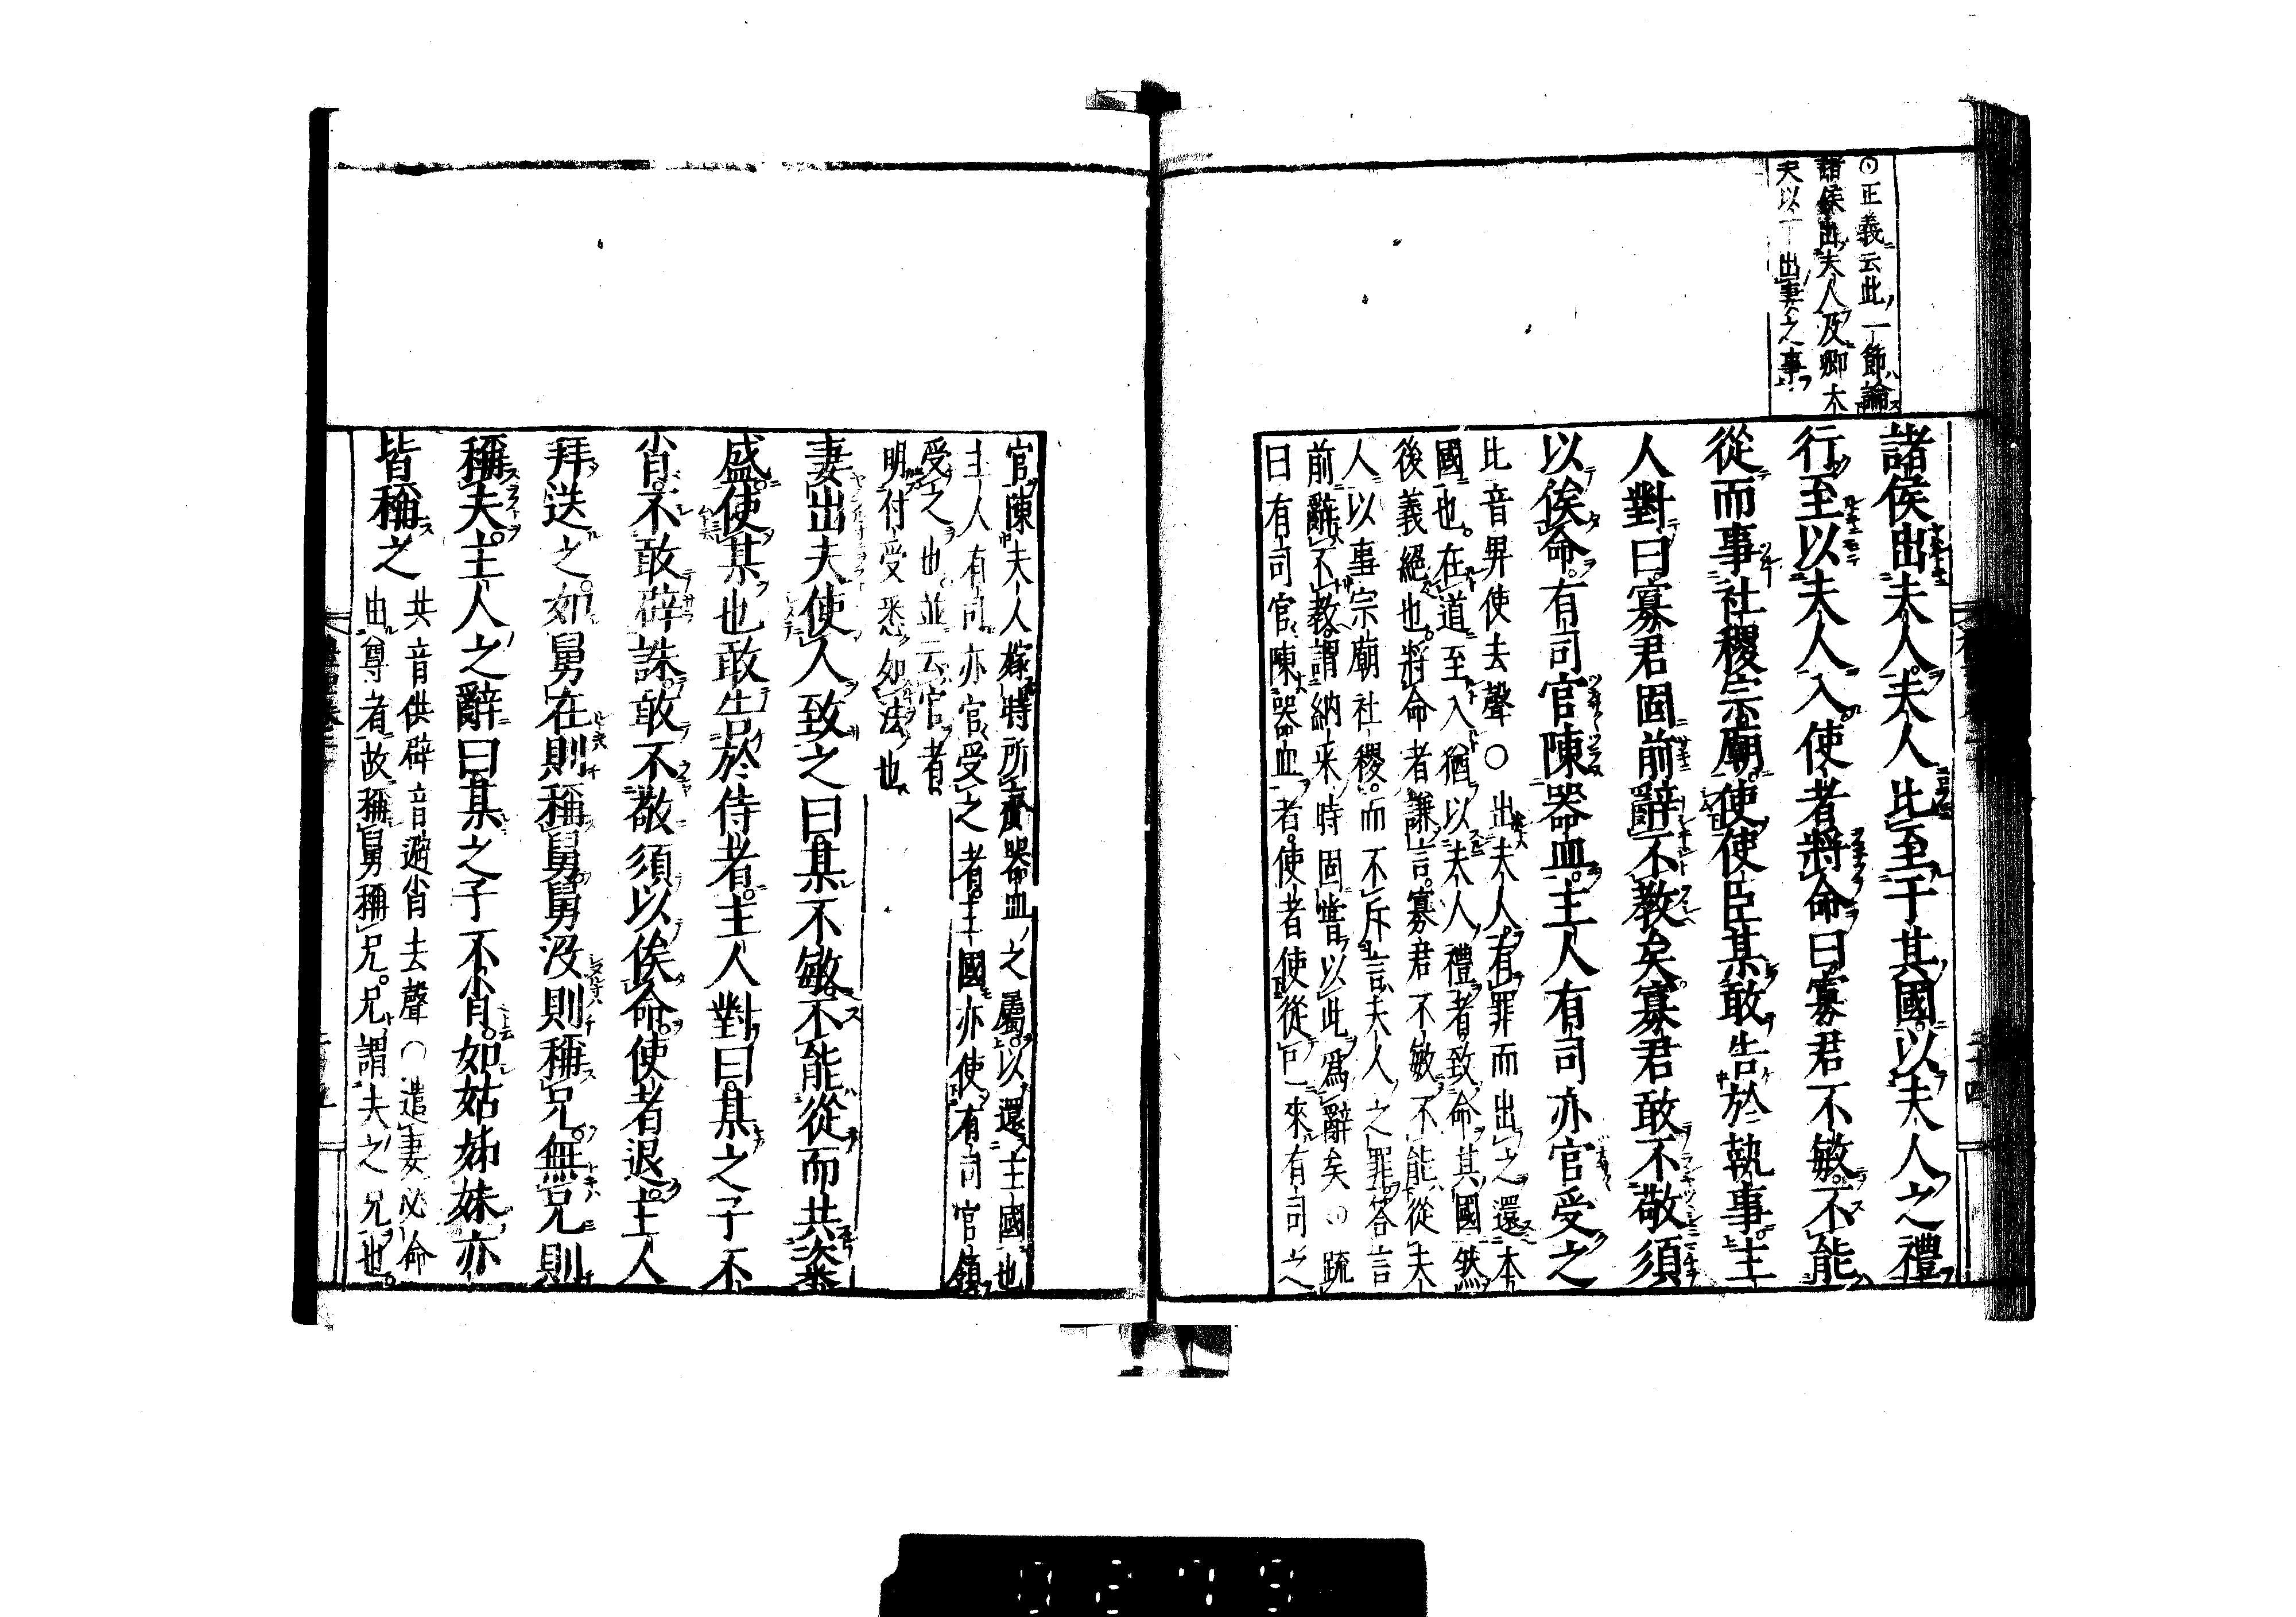 〇正義云此一節論
諸侯出夫人及卿大
夫以下出妻之事
諸侯出夫人夫人比至于其國以夫人之禮
行至以夫人入使者將命曰寡君不敏不能
從而事社稷宗廟使使臣某敢告於執事主
人對曰寡君固前辭不教矣寡君敢不敬須
以俟命有司官陳器皿主人有司亦官受之
比音畀使去聲〇出夫人有罪而出之還本
國也在道至入猶以夫人禮者致命其國然
後義絕也將命者謙言寡君不敏不能從夫
人以事宗廟社稷而不斥言夫人之罪答言
前辭不教謂納采時固嘗以此為辭矣〇疏
曰有司官陳器皿者使者使從已來有司之
官陳夫人嫁時所賫器皿之屬以還主國也
主人有司亦官受之者主國亦使有司官領
受之也並云官者
明付受悉如法也
妻出夫使人致之曰某不敏不能從而共粢
盛使某也敢告於侍者主人對曰某之子不
肖不敢辟誅敢不敬須以俟命使者退主人
拜送之如舅在則稱舅舅沒則稱兄無兄則
稱夫主人之辭曰某之子不肖如姑姊妹亦
皆稱之
共音供辟音避肖去聲〇遣妻必命
由尊者故稱舅稱兄兄謂夫之兄也